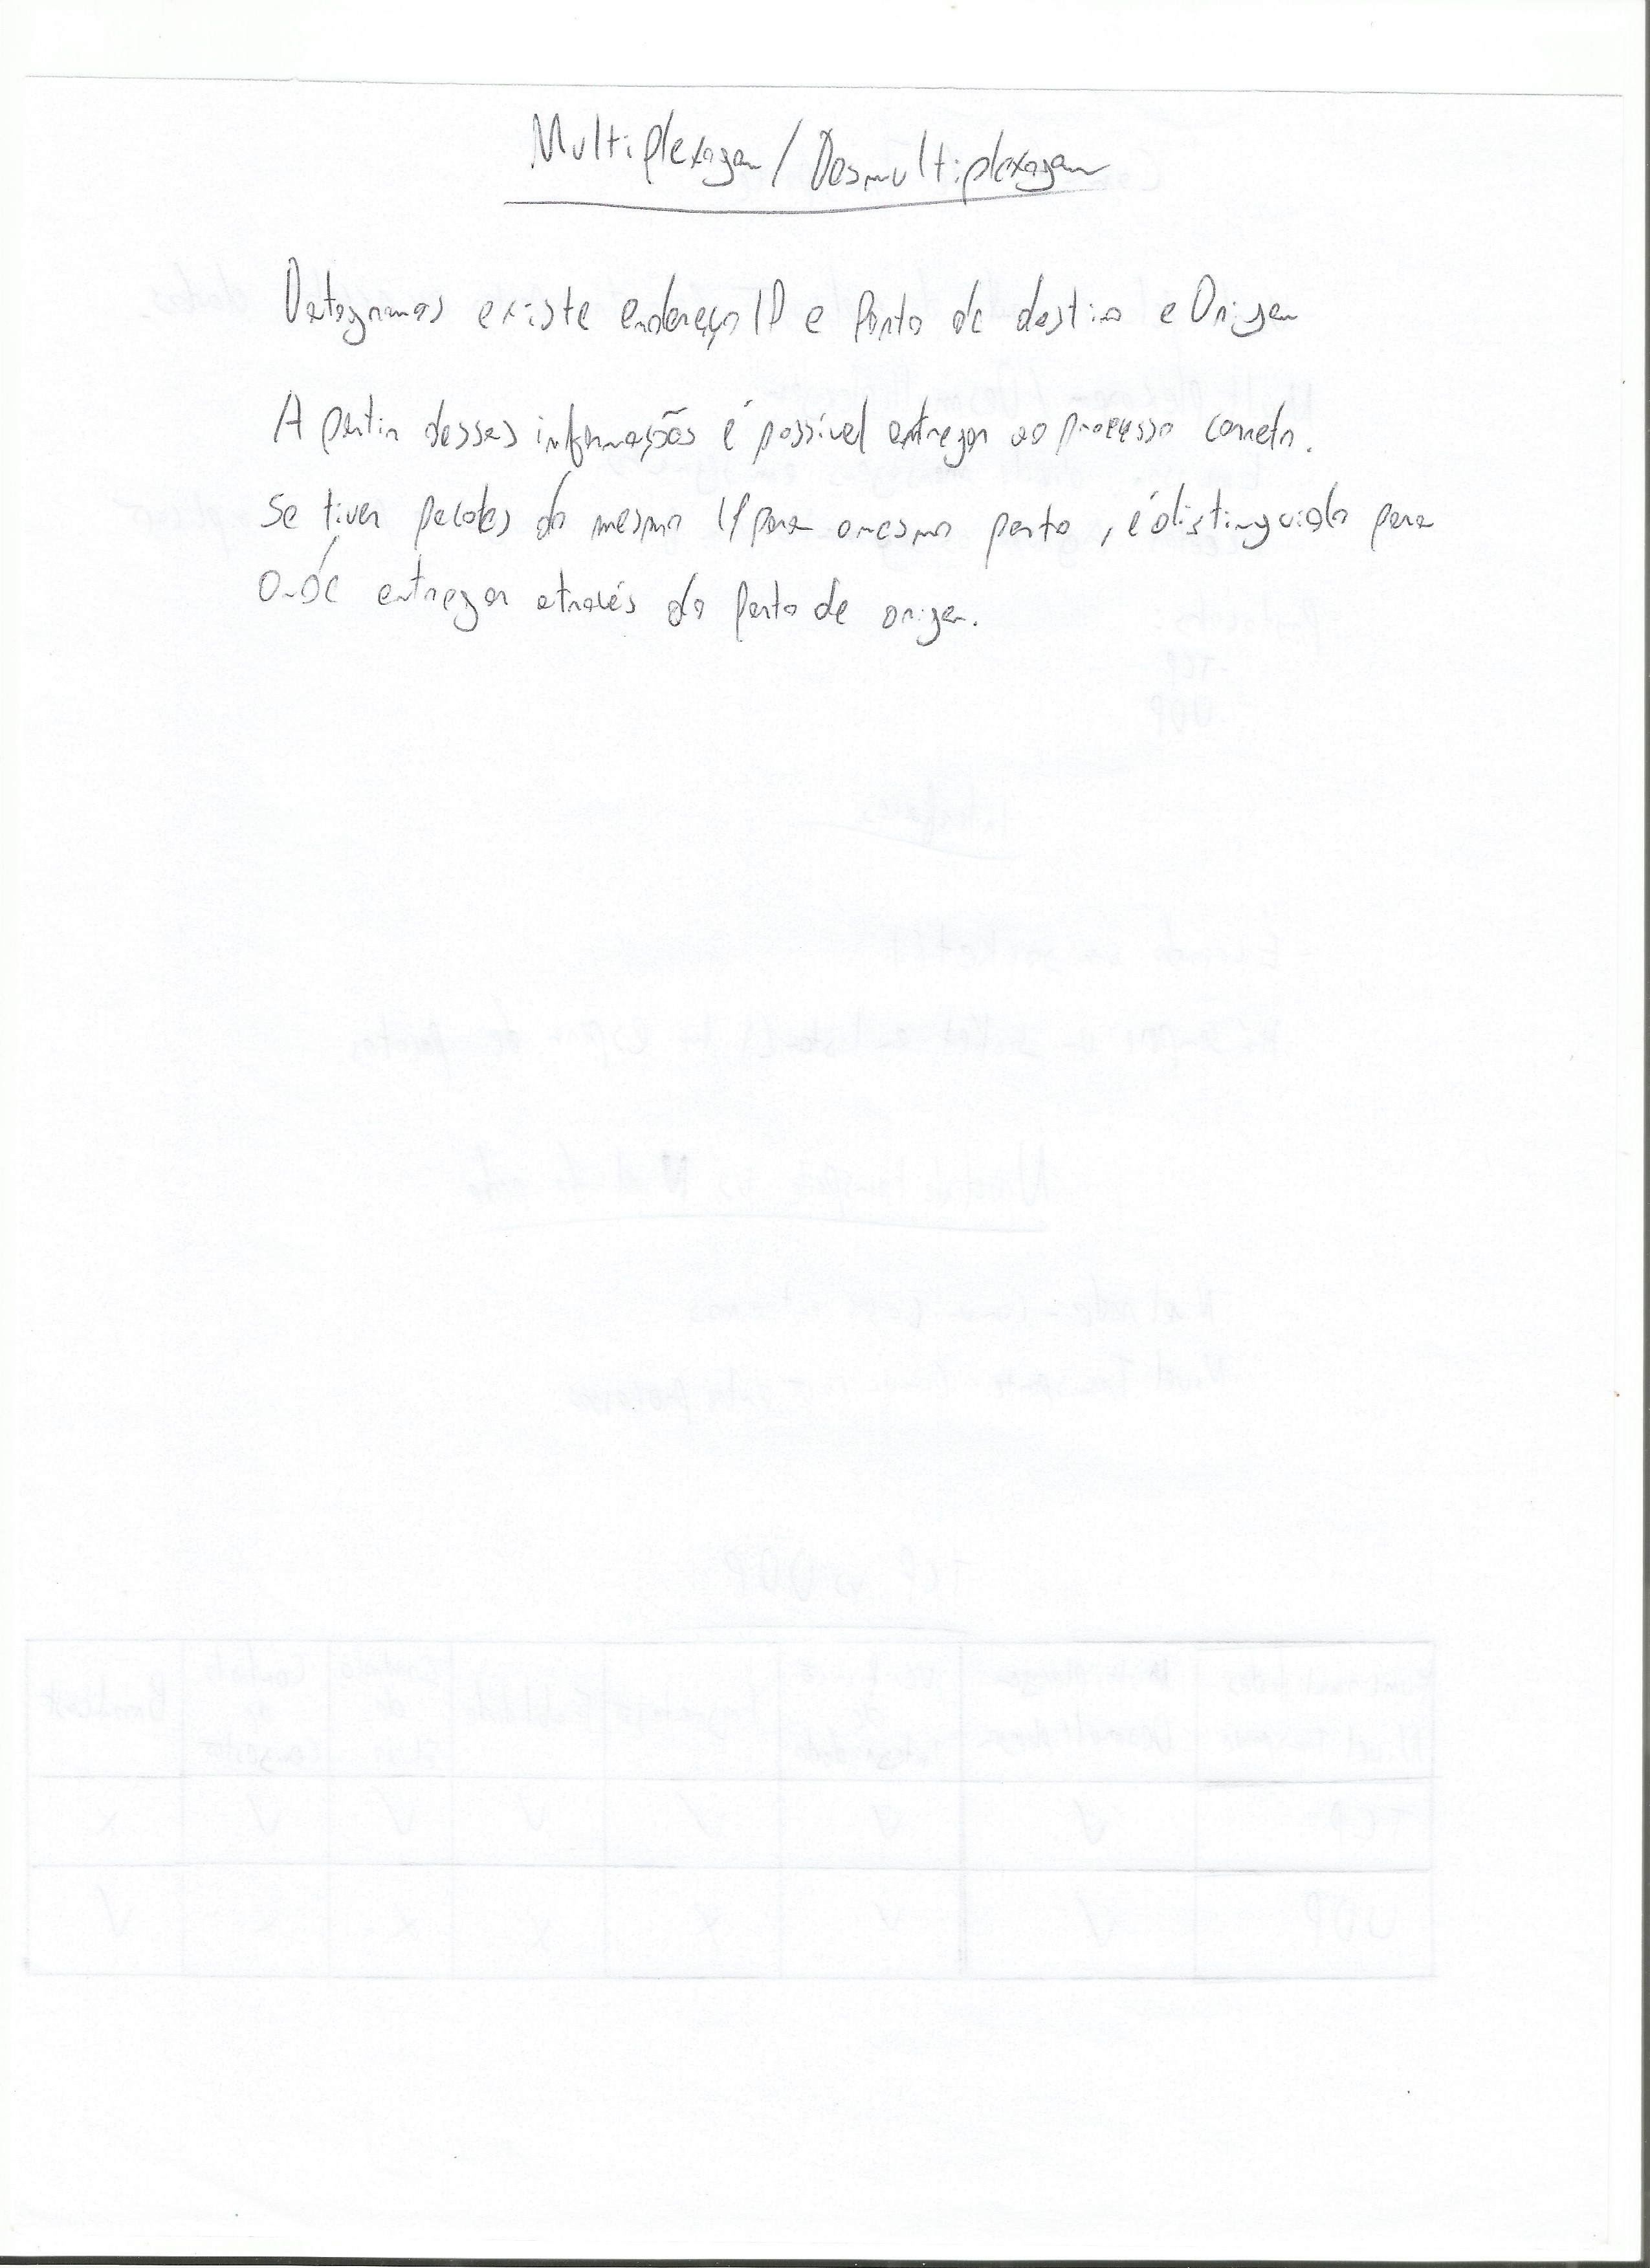 Multiplexagem/Desmultiplexagem
Datagramas existe endereço IP e Porto de destino e Origem
A partir dessas informações é possível entregar ao processo correto.
Se tiver pacotes do mesmo IP para o mesmo porto, é distinguido para
onde entregar através do Porto de origem.